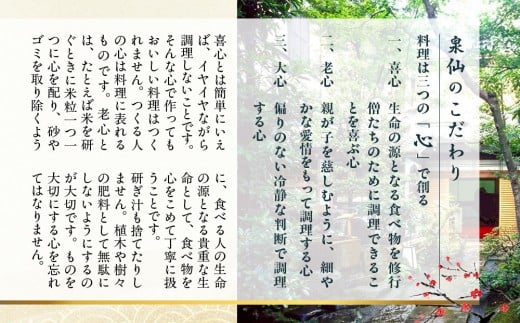 泉仙のこだわり
料理は三つの「心」で創る
一、喜心　生命の源となる食べ物を修行
僧たちのために調理できるこ
とを喜ぶ心
二、老心　親が子を慈しむように、細や
かな愛情をもって調理する心
三、大心　偏りのない冷静な判断で調理
する心
喜心とは簡単にいえ
ば、イヤイヤながら
調理しないことです。
そんな心で作っても
おいしい料理はつく
れません。つくる人
の心は料理に表れる
ものです。老心と
は、たとえば米を研
ぐときに米粒一つ一
つに心を配り、砂や
ゴミを取り除くよう
に、食べる人の生命
の源となる貴重な生
命として、食べ物を
心をこめて丁寧に扱
うことです。
研ぎ汁も捨てたりし
ません。植木や樹々
の肥料として無駄に
しないようにするの
が大切です。ものを
大切にする心を忘れ
てはなりません。